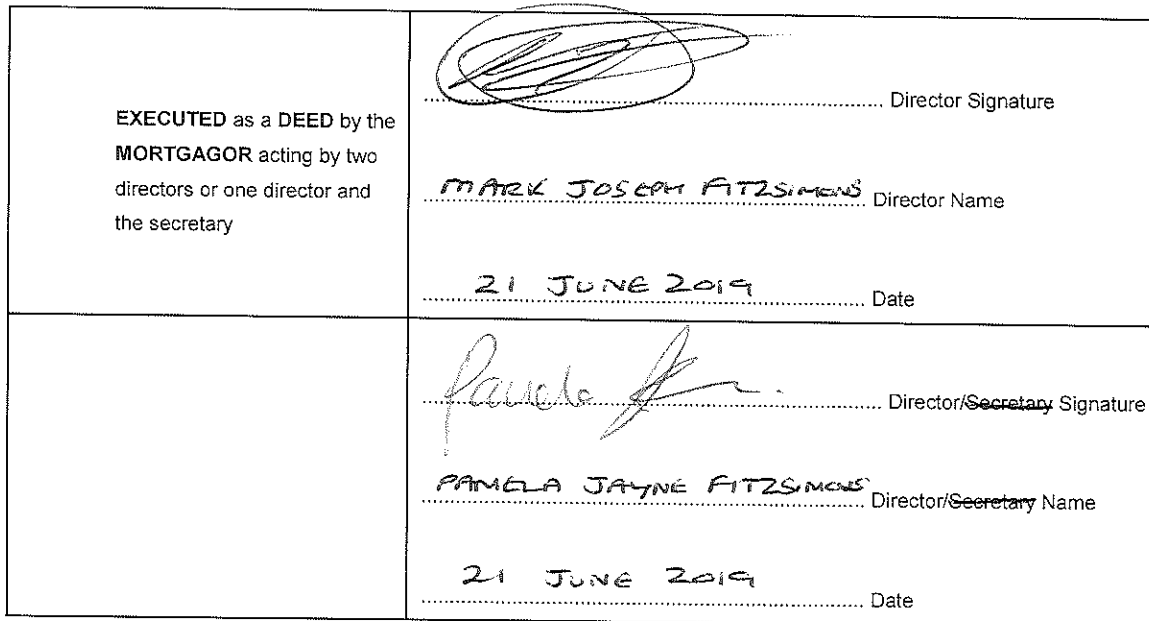 Director Signature
EXECUTED as a DEED by the
MORTGAGOR acting by two
directors or one director and
the secretary
MARK JOSEPH FITZSIMONS Director Name
21 JUNE 2019 Date
Pamela Director/Secretary Signature
PAMELA JAYNE FITZSIMONS Director/Secretary Name
21 JUNE 2019 Date